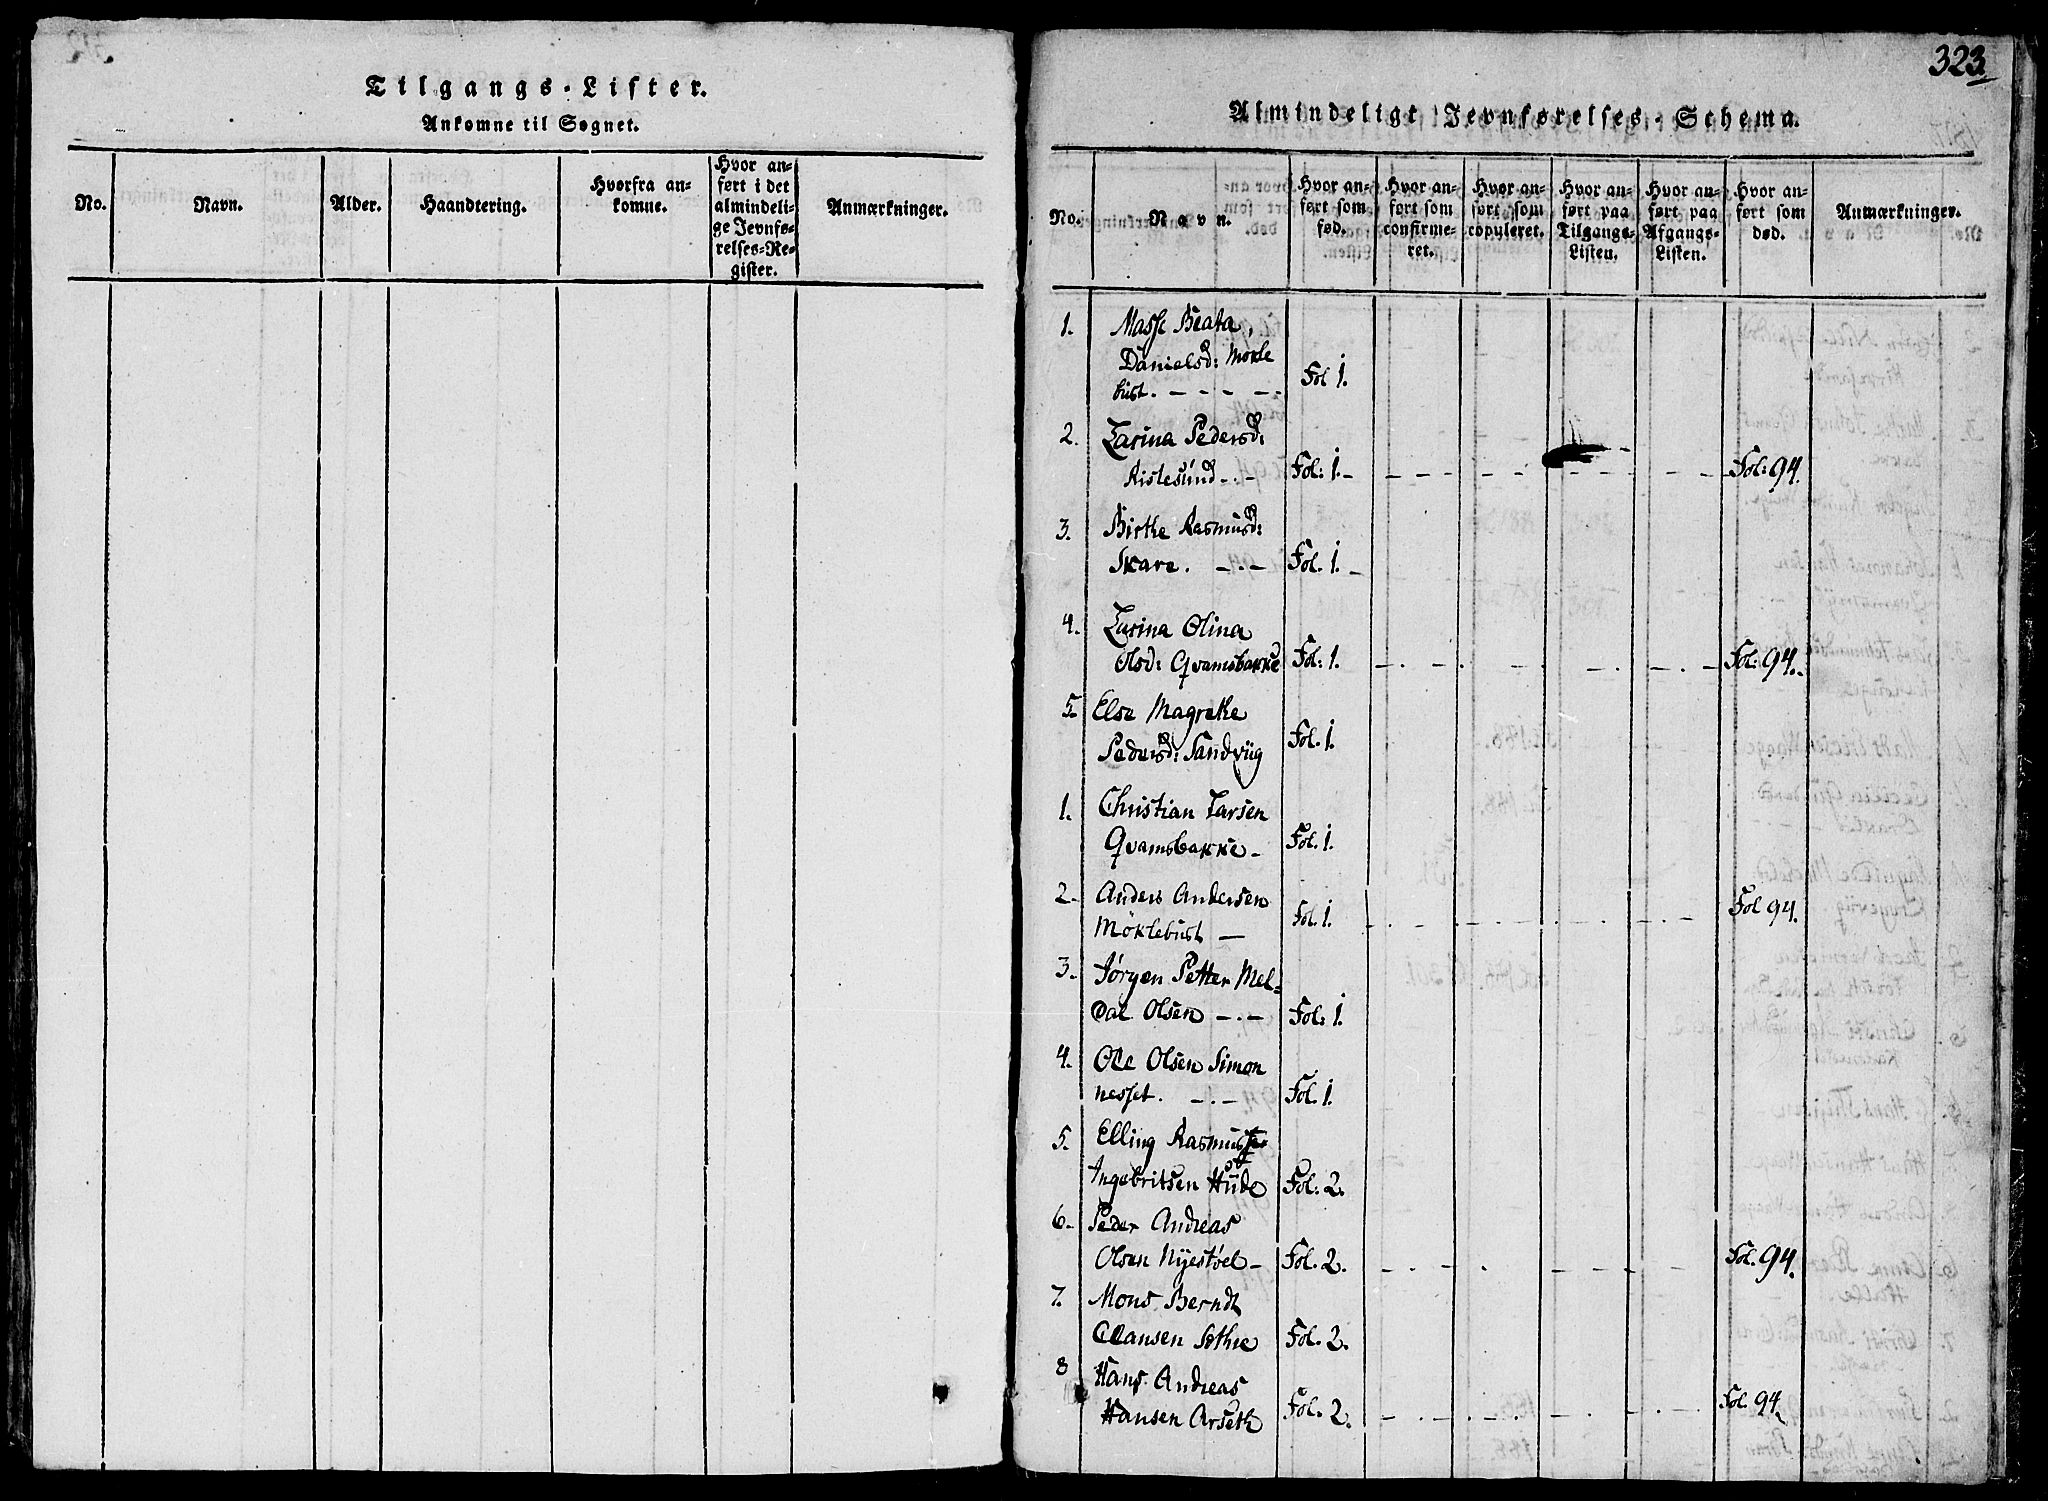 Tilgangs-Lister.
Ankomne til Sognet.
No.
Navn.
Alder.
Haandtering.
Hvorfra an-
komne.
Hvor an-
ført i det
almindeli-
ge Jevnfø-
relses-Re-
gister.
Anmærkninger.
323.
Almindeligt Jevnførelses-Schema.
No.
Navn.
Hvor an-
ført som
fød.
Hvor an-
ført som
confirme-
ret.
Hvor an-
ført som
copuleret.
Hvor an-
ført paa
Tilgangs-
Listen.
Hvor an-
ført paa
Afgangs-
Listen.
Hvor an-
ført som
død.
Anmærkninger.
1. Masse Beata,
Danielsd: Mökle
bust. - - - - - Fol 1.
2. Larina Pedersd:
Ristesund - . - Fol: 1. - - - - - - - Fol: 94.
3. Birthe Rasmusd:
Skare. - . - Fol. 1. -
4. Larina Olina
Olsd: Qvamsbakke Fol: 1. - . - . - . - . - Fol: 94.
5. Else Magrethe
Pedersd: Sandviig Fol. 1.
1. Christian Larsen
Qvamsbakke - Fol. 1.
2. Anders Andersen
Möklebust - Fol. 1. - - - - - - - Fol 94.
3. Jörgen Petter Mel=
dal Olsen - . - Fol: 1.
4. Ole Olsen Simon
nesset. - . - Fol. 1.
5. Elling Rasmus
Ingebritsen Hude Fol: 2.
6. Peder Andreas
Olsen Nyestöel - Fol. 2. - . - . - - - - Fol. 94.
7. Mons Berndt
Clausen Sethre Fol. 2.
8 Hans Andreas
Hansen Arseth Fol. 2. - . - . - . - - . - Fol. 94.